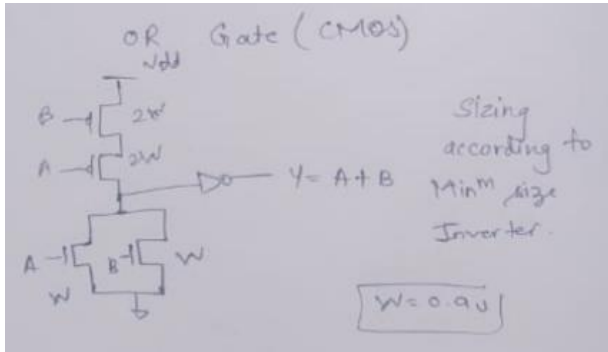 OR Gate (CMOS)
Vdd
B 2W
A 2W
Y = A + B
A B W
W
Sizing
according to
Minᵐ size
Inverter.
W = 0.9u